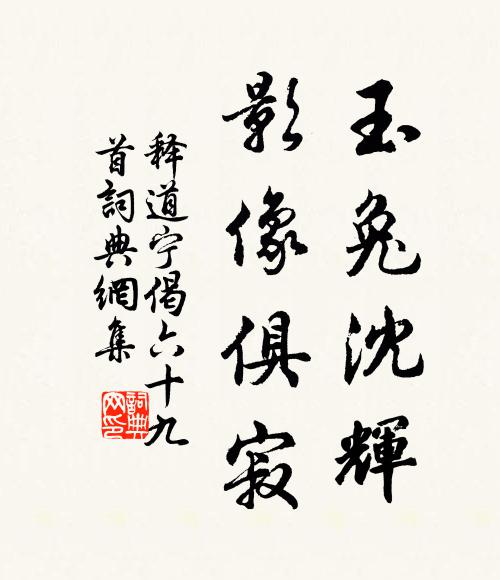 玉兔沈輝
影像俱寂
释道宁偈六十九
首詞典網集
詞典
网印